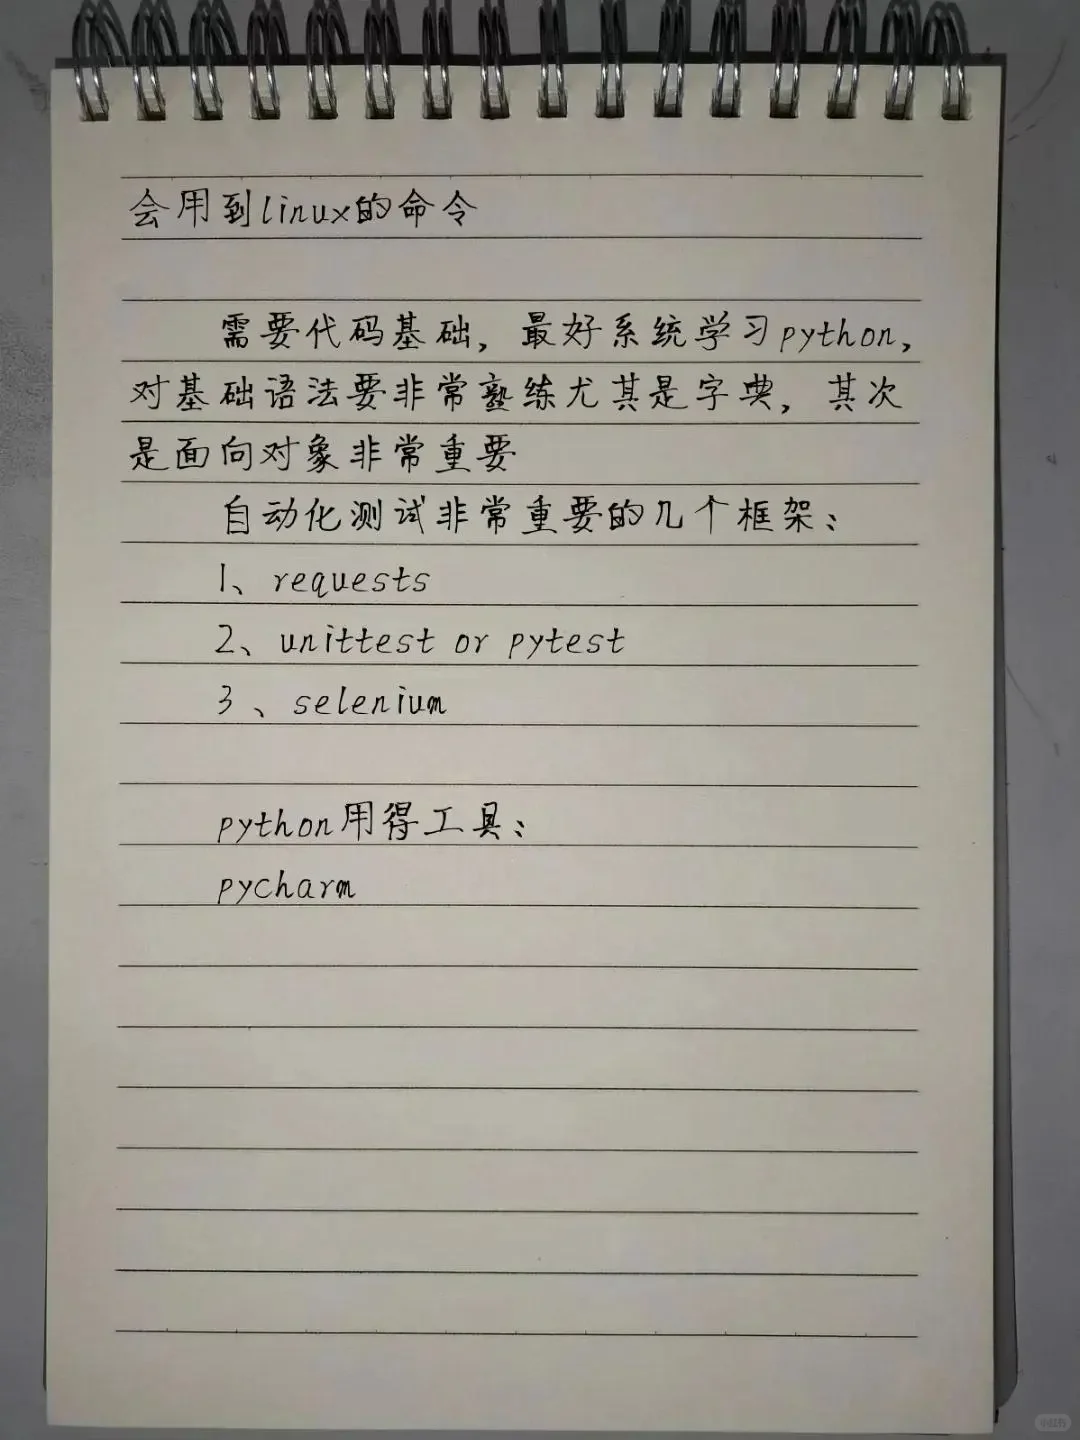 会用到linux的命令
需要代码基础，最好系统学习python，
对基础语法要非常熟练尤其是字典，其次
是面向对象非常重要
自动化测试非常重要的几个框架：
1、requests
2、unittest or pytest
3、selenium
python用得工具：
pycharm
小红书